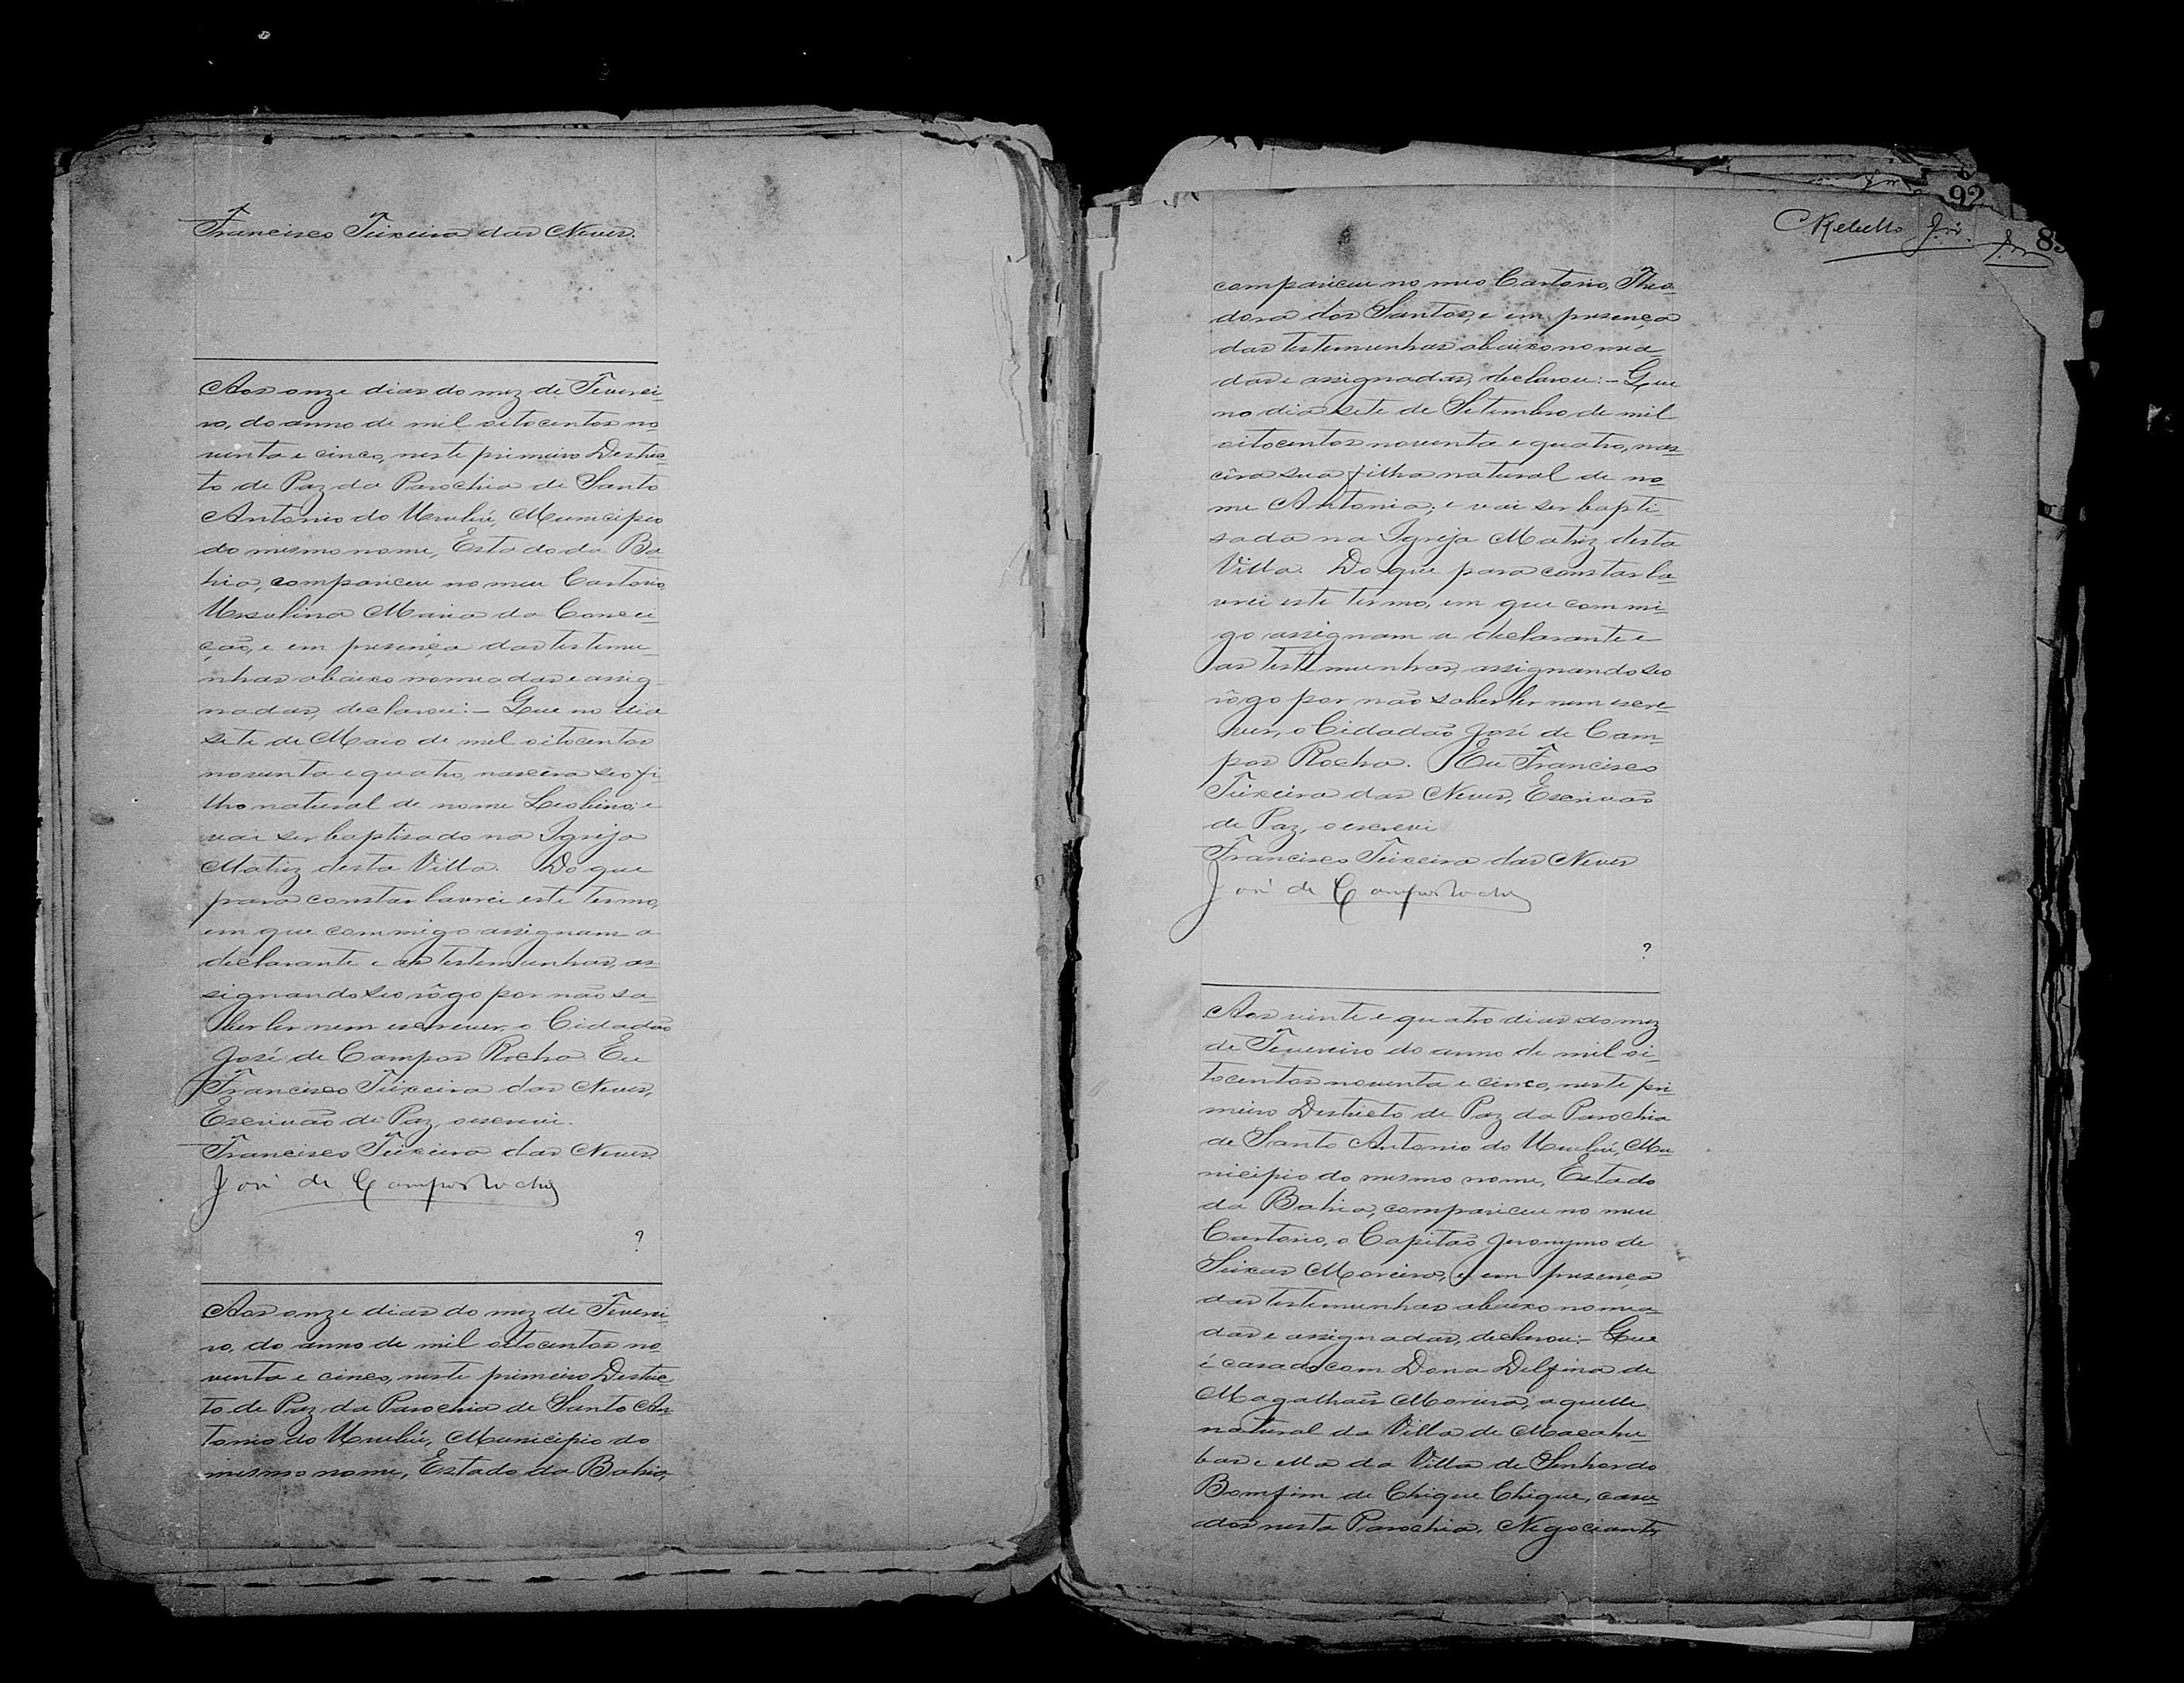 Francisco Teixeira das Neves.
Aos onze dias do mez de Feverei-
ro, do anno de mil oitocentos no
venta e cinco, neste primeiro Destric-
to de Paz da Parochia de Santo
Antonio do Urubú, Municipio
do mesmo nome, Estado da Ba-
hia, compareceu no meu Cartorio,
Ursulina Maria da Concei-
ção, e em presença das testemu-
nhas abaixo nomeadas e assig-
nadas, declarou:- Que no dia
sete de Maio de mil oitocentos
noventa e quatro, nascera seo fi-
lho natural de nome Leolino; e
vai ser baptisado na Igreja
Matriz desta Villa. Do que
para constar lavrei este termo,
em que commigo assignam a
declarante e as testemunhas, as-
signando seo rôgo por não sa-
ber ler nem escrever, o Cidadão
José de Campos Rocha. Eu
Francisco Teixeira das Neves,
Escrivão de Paz, o escrevi.
Francisco Teixeira das Neves.
José de Campos Rocha
?
Aos onze dias do mez de Feverei-
ro, do anno de mil oitocentos no
venta e cinco, neste primeiro Destric-
to de Paz da Parochia de Santo An-
tonio do Urubú, Municipio do
mesmo nome, Estado da Bahia,
92
Rebello Jor.
83
compareceu no meo Cartorio, Theo-
dora dos Santos, e em presença
das testemunhas abaixo nomea-
das e assignadas, declarou:- Que
no dia sete de Setembro de mil
oitocentos noventa e quatro, nas-
cêra sua filha natural de no-
me Antonia; e vai ser bapti-
sada na Igreja Matriz desta
Villa. Do que para constar la-
vrei este termo, em que commi-
go assignam a declarante e
as testemunhas, assignando seo
rôgo por não saber ler nem escre-
ver, o Cidadão José de Cam-
pos Rocha. Eu Francisco
Teixeira das Neves, Escrivão
de Paz, o escrevi
Francisco Teixeira das Neves
José de Campos Rocha
?
Aos vinte e quatro dias do mez
de Fevereiro do anno de mil oi-
tocentos noventa e cinco, neste pri-
meiro Destricto de Paz da Parochia
de Santo Antonio do Urubú, Mu-
nicipio do mesmo nome, Estado
da Bahia, compareceu no meu
Cartorio, o Capitão Jeronymo de
Seixas Moreira, e em presença
das testemunhas abaixo nomea-
das e assignadas, declarou:- Que
é casado com Dona Delfina de
Magalhães Moreira, aquelle
natural da Villa de Macahu-
bas e ella da Villa de Senhor do
Bomfim de Chique Chique, casa-
dos nesta Parochia. Negociante,